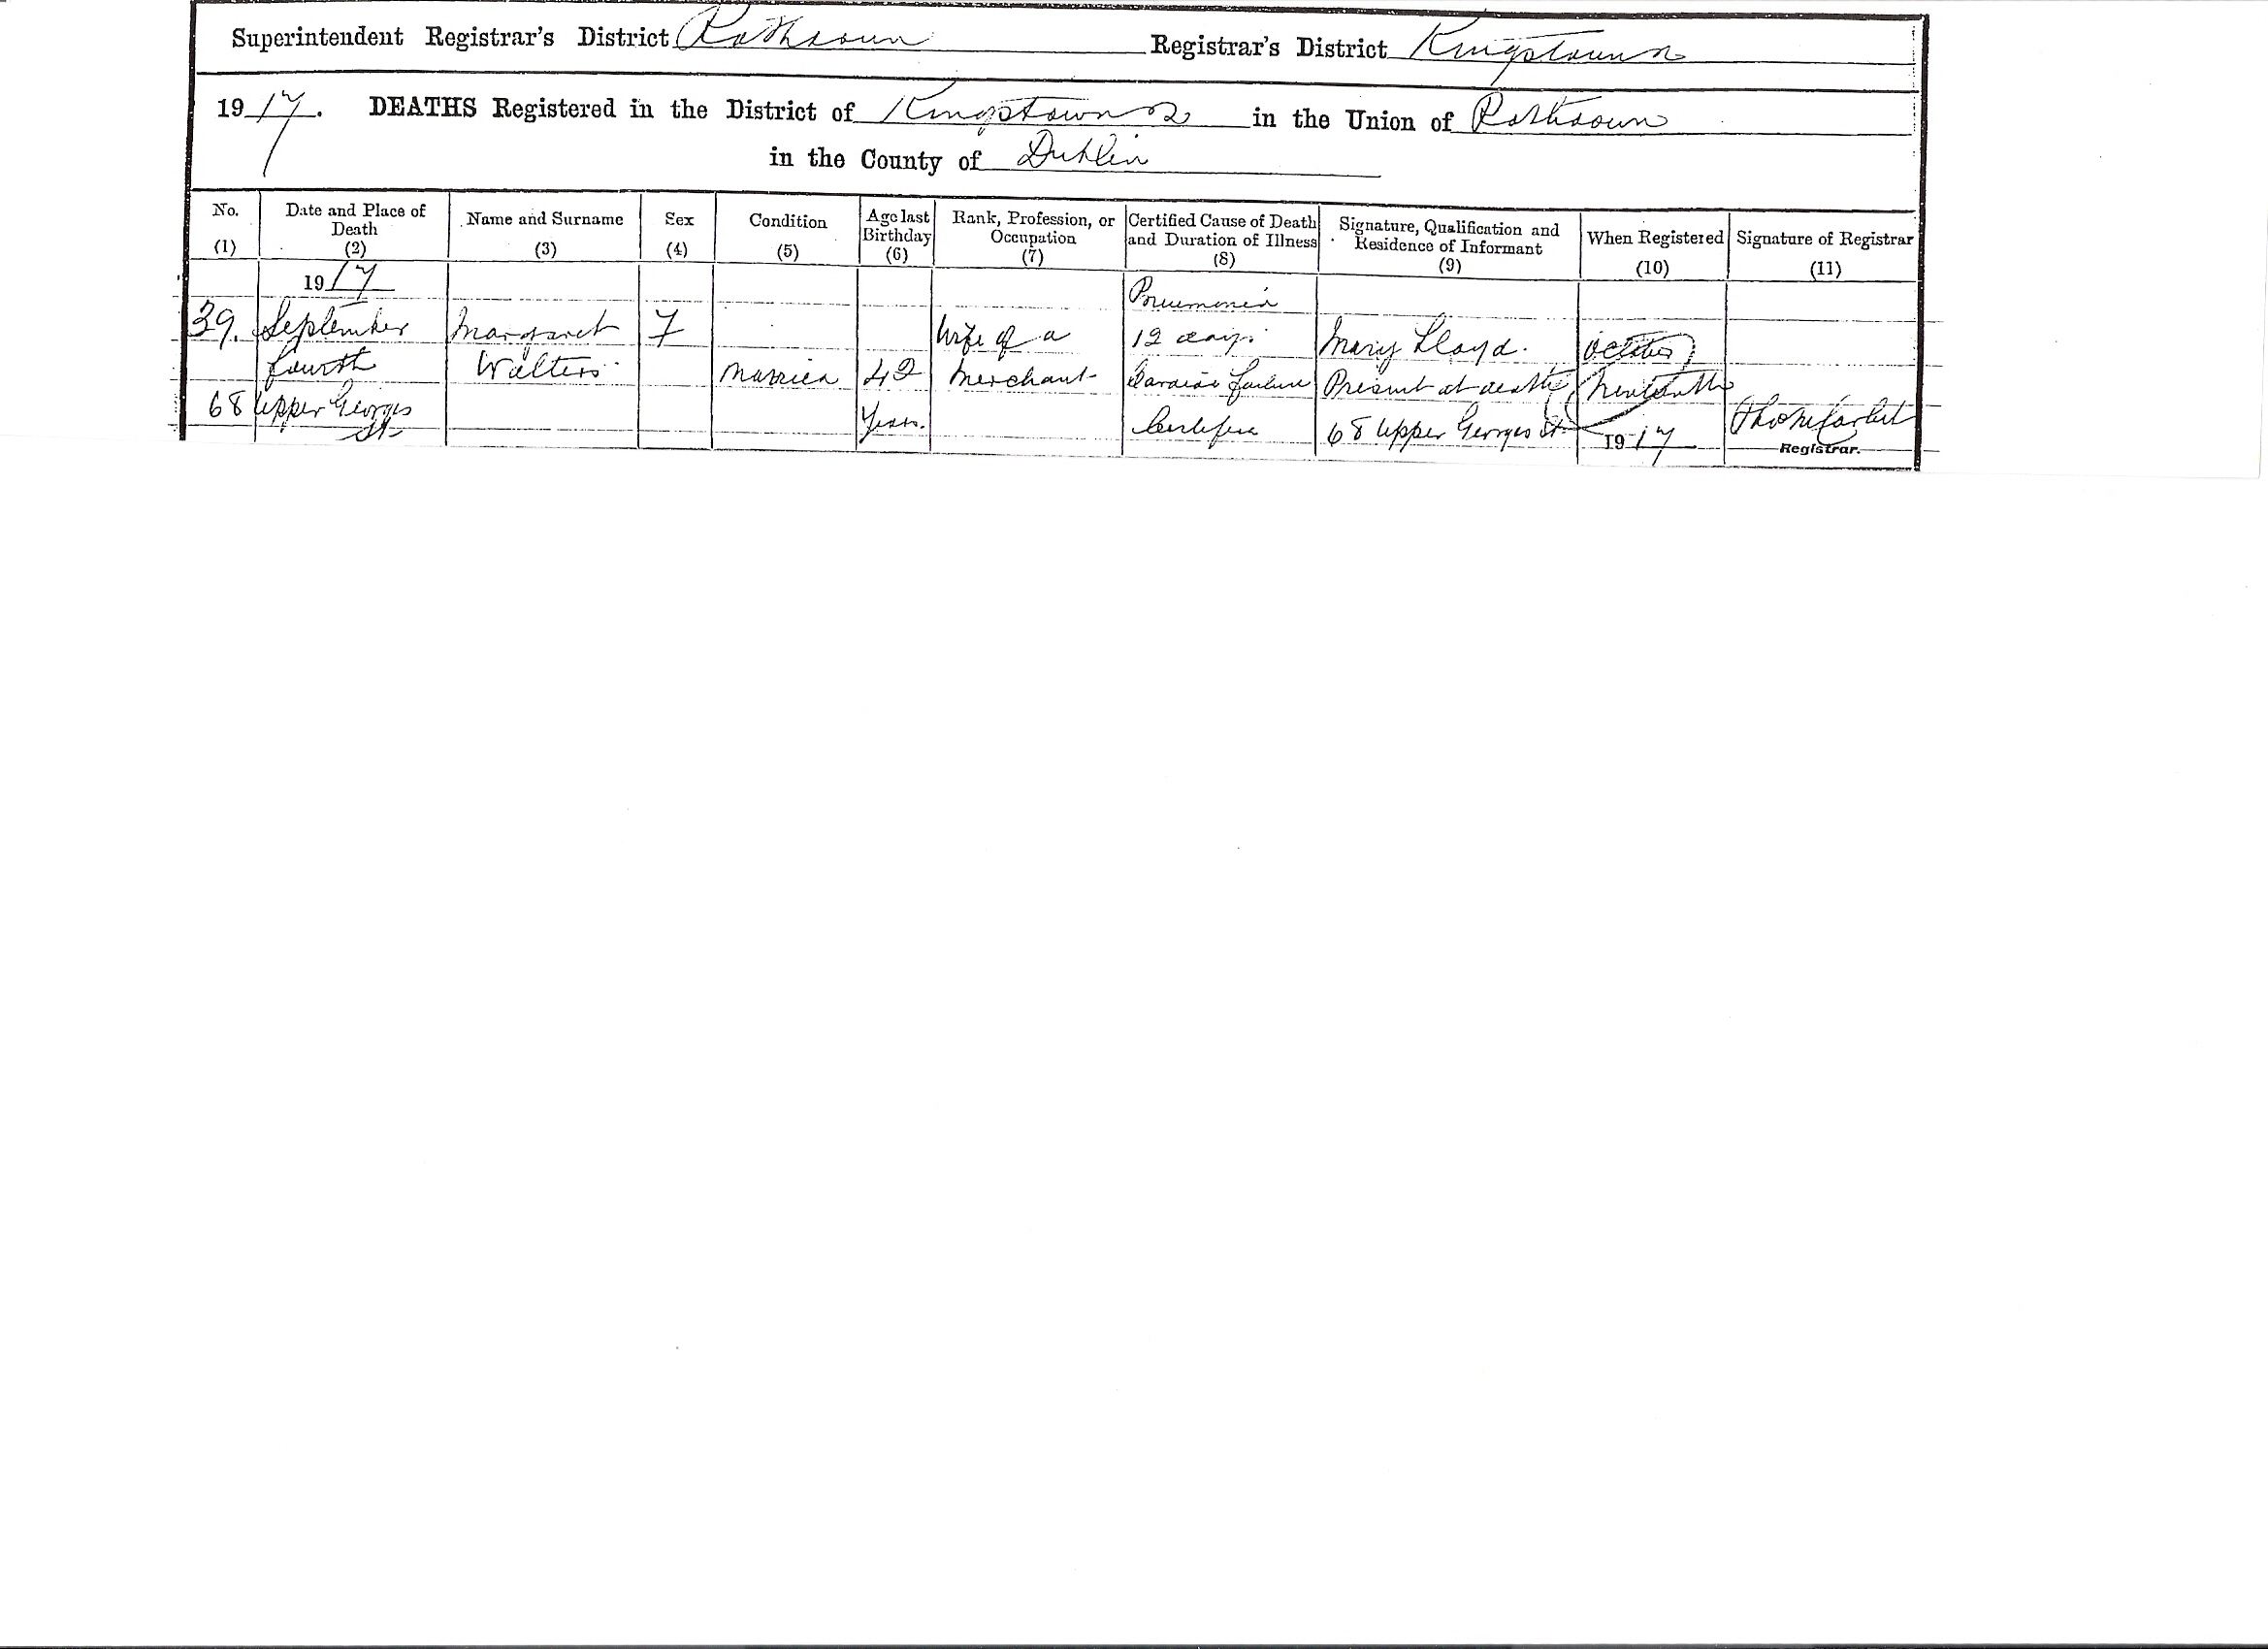 Superintendent Registrar's District Rathdown Registrar's District Kingstown
1917. DEATHS Registered in the District of Kingstown 2 in the Union of Rathdown
in the County of Dublin
No. (1)
Date and Place of Death (2)
Name and Surname (3)
Sex (4)
Condition (5)
Age last Birthday (6)
Rank, Profession, or Occupation (7)
Certified Cause of Death and Duration of Illness (8)
Signature, Qualification and Residence of Informant (9)
When Registered (10)
Signature of Registrar (11)
39.
1917
September
fourth
68 Upper Georges
St
Margaret
Walters
F
Married
42
Years.
Wife of a
Merchant
Pneumonia
12 days.
Cardiac failure
Certified
Mary Lloyd.
Present at death
68 Upper Georges St
October
1917
Registrar.